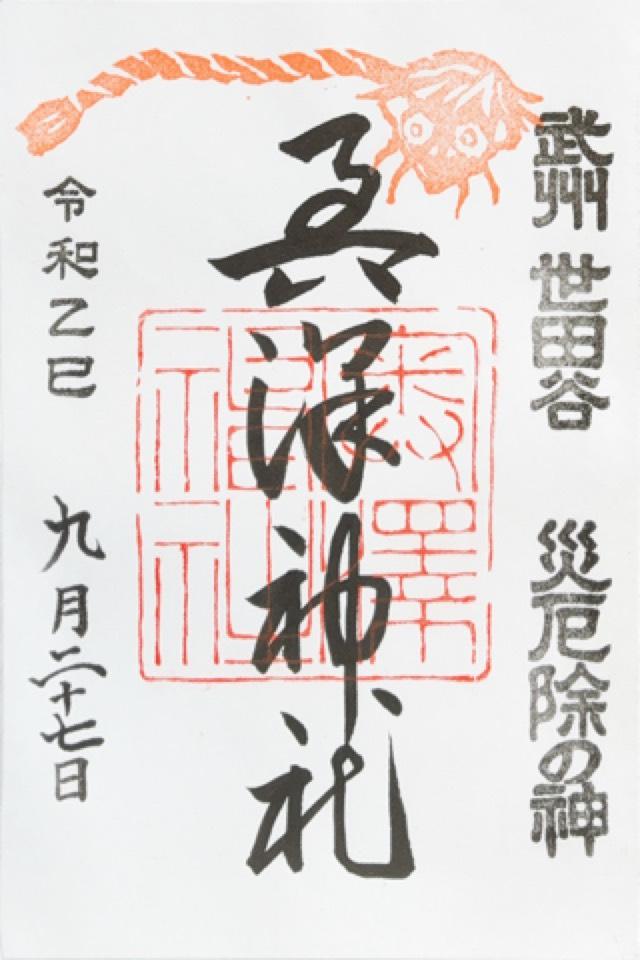 武州 世田谷 災厄除の神
奥澤神社
奥澤神社
令和乙巳 九月二十七日